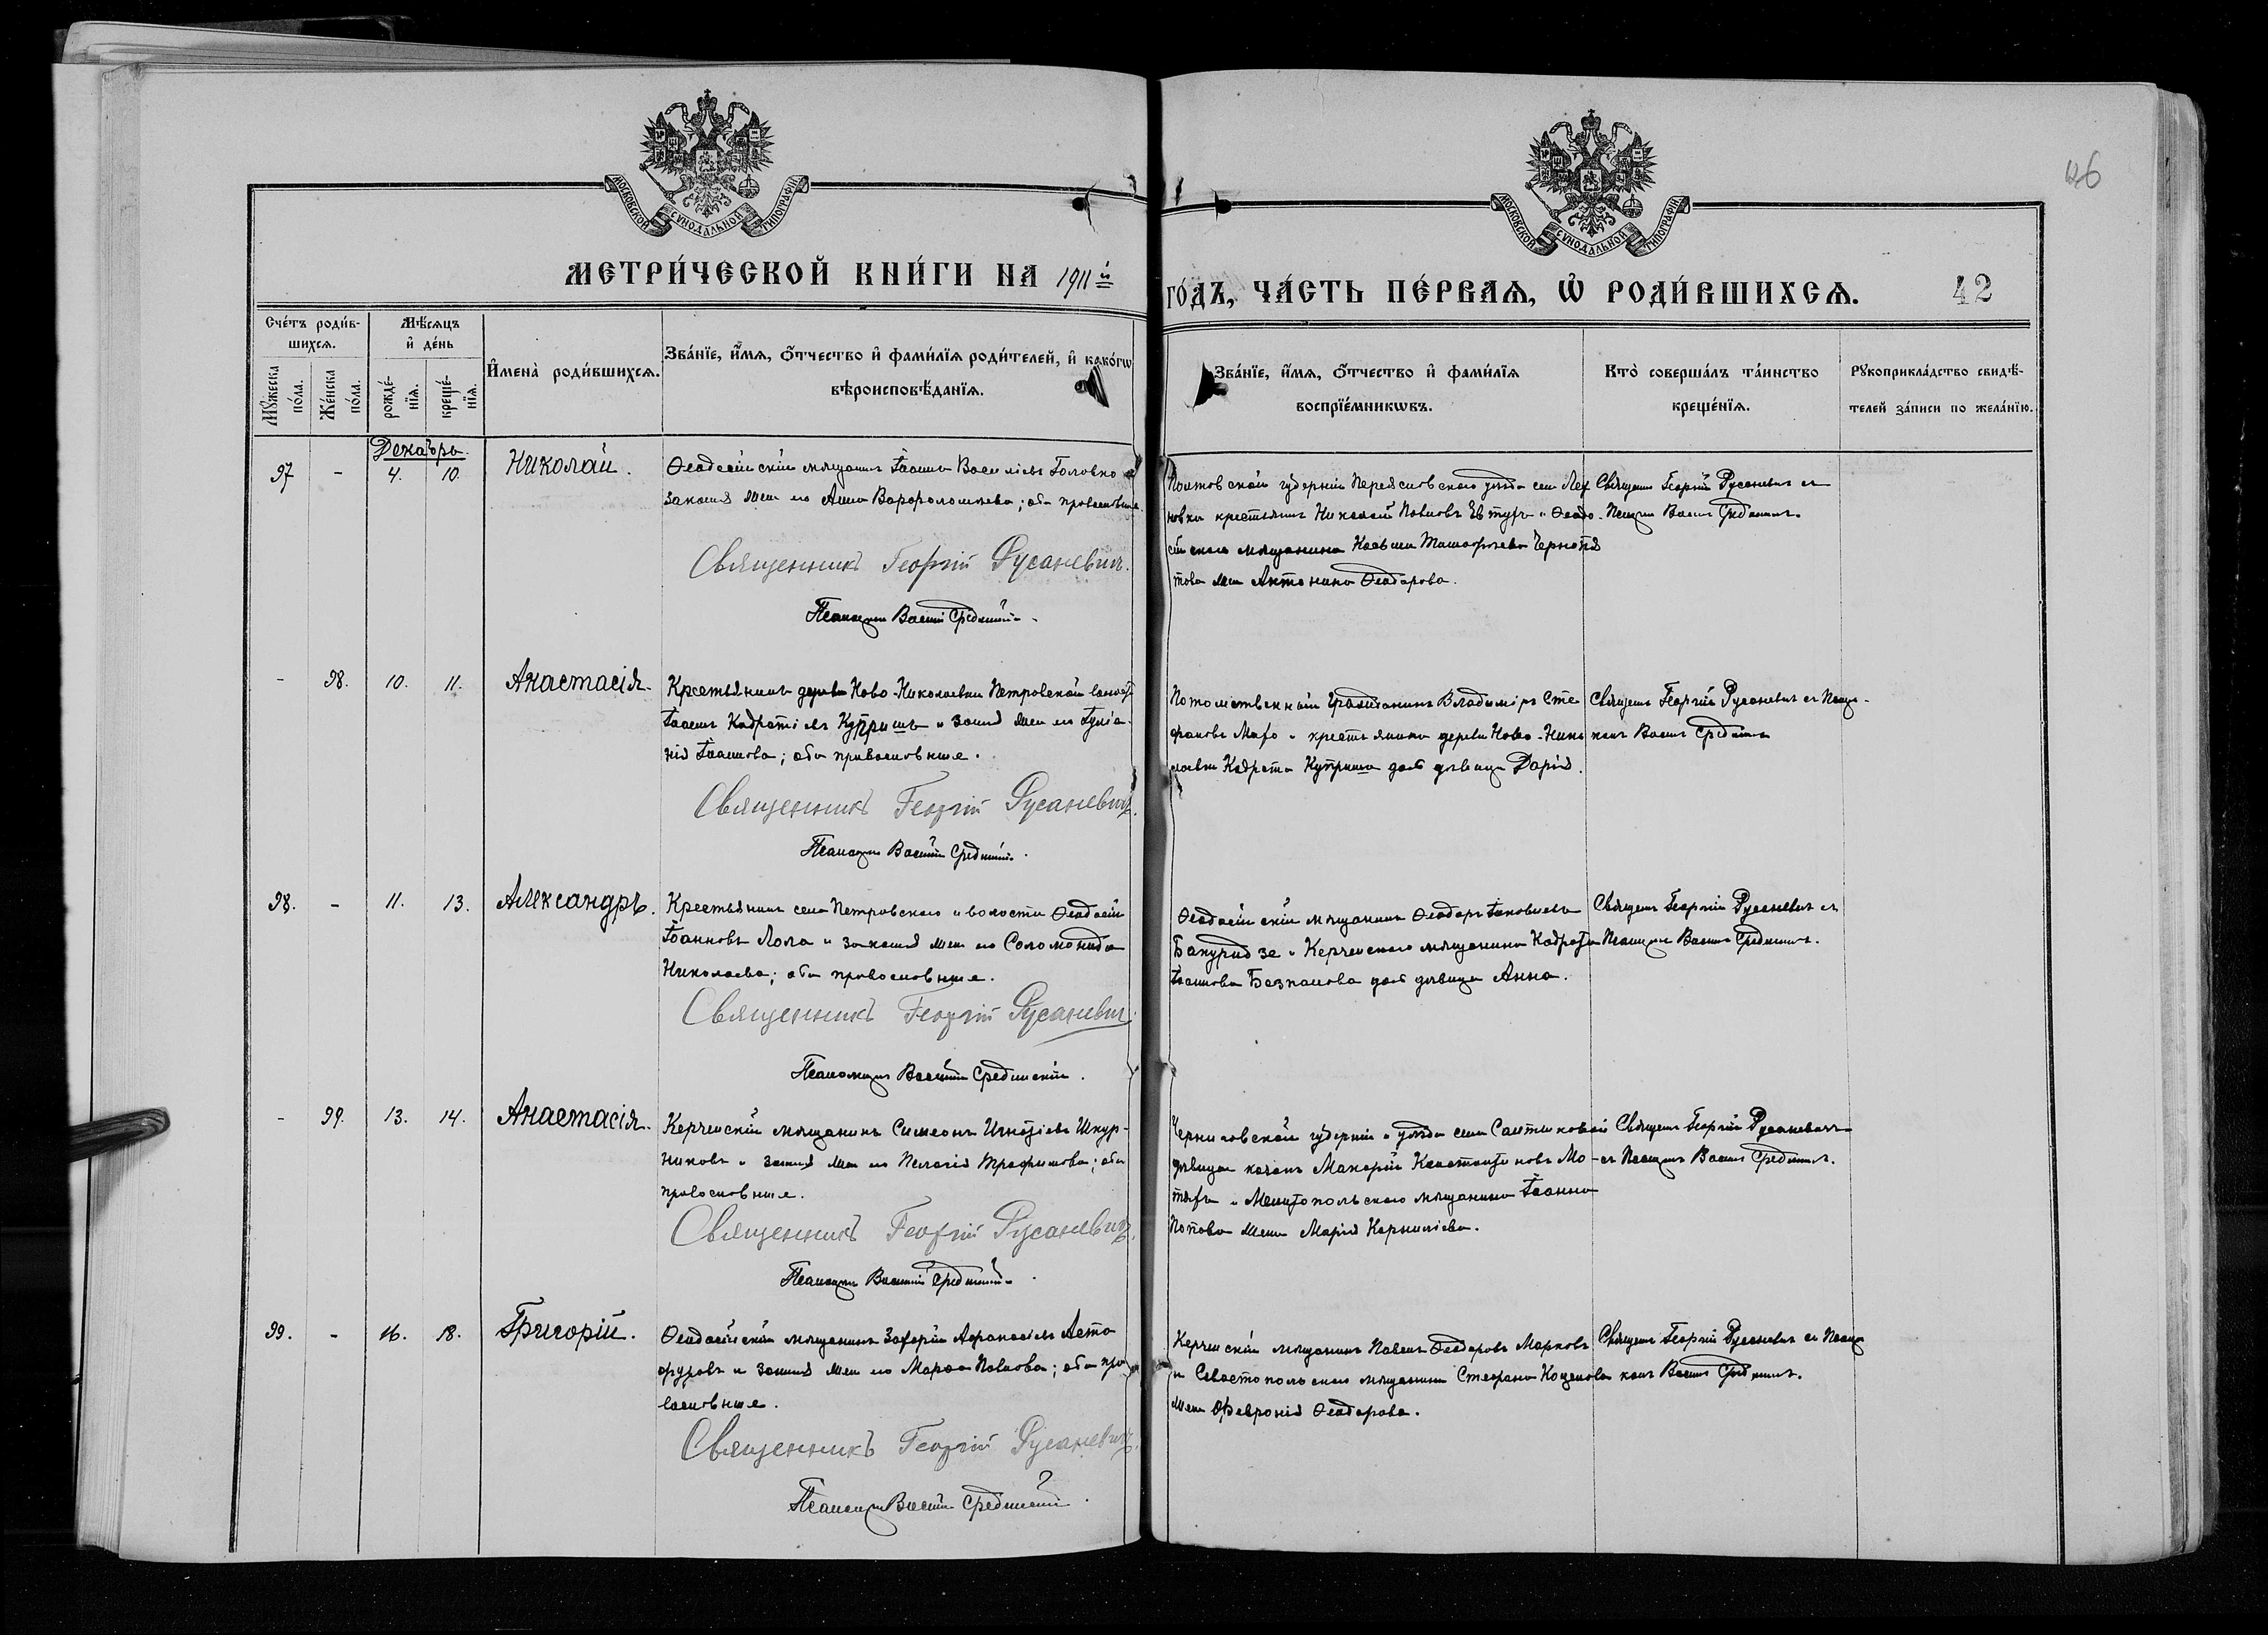 126
МОСКОВСКОЙ СѴНОДАЛЬНОЙ ТИПОГРАФІИ
МОСКОВСКОЙ СѴНОДАЛЬНОЙ ТИПОГРАФІИ
МЕТРИ́ЧЕСКОЙ КНИ́ГИ НА 1911й
ГО́ДЪ, ЧА́СТЬ ПЕ́РВАѦ, Ѡ҆ РОДИ́ВШИХСѦ. 42
Сче́тъ роди́в-
шихсѧ.
Мꙋ́жеска по́ла.
Же́нска по́ла.
Мѣ́сѧцъ
и҆ де́нь
рожде́-
нїѧ.
креще́-
нїѧ.
И҆мена̀ роди́вшихсѧ.
Зва́нїе, и҆́мѧ, ѻ҆́тчество и҆ фами́лїѧ роди́телей, и҆ како́гѡ
вѣроисповѣ́данїѧ.
Зва́нїе, и҆́мѧ, ѻ҆́тчество и҆ фами́лїѧ
воспрїе́мникѡвъ.
Кто̀ соверша́лъ та́инство
креще́нїѧ.
Рꙋкоприкла́дство свидѣ́-
телей за́писи по жела́нїю.
Декабрь.
97 - 4. 10. Николай.
Ѳеодосійскій мѣщанинъ Іоаннъ Василіевъ Головко и
законная жена его Анна Варфоломеева; оба православные.
Священникъ Георгій Русаневичъ.
Псаломщикъ Василій Срединскій.
Полтавской губерніи Переяславского уѣзда села
новки крестьянинъ Николай Павловъ Евтухъ и Ѳеодо-
сійского мѣщанина
това жена Антонина Ѳеодорова.
Священ. Георгій Русаневичъ съ
Псаломщ. Васил. Срединскимъ.
- 98. 10. 11. Анастасія.
Крестьянинъ деревни Ново-Николаевки Петровской волости
Іоаннъ Кодратіевъ Купришъ и законная жена его Іуліа-
нія Іоаннова; оба православные.
Священникъ Георгій Русаневичъ.
Псаломщикъ Василій Срединскій.
Потомственный Гражданинъ Владиміръ Сте-
фановъ и крестьянина деревни Ново-Нико
лаевки Кодрата Куприша дочь дѣвица Дарія.
Священ. Георгій Русаневичъ съ Псалом-
комъ Васил. Срединскимъ
98. - 11. 13. Александръ.
Крестьянинъ села Петровского и волости Ѳеодосій
Іоанновъ Лола и законная жена его Соломонида
Николаева; оба православные.
Священникъ Георгій Русаневичъ
Псаломщикъ Василій Срединскій.
Ѳеодосійскій мѣщанинъ Ѳеодоръ Іаковлевъ
Бакуридзе и Керченского мѣщанина Кодрата
Іоаннова Безпалова дочь дѣвица Анна.
Священ. Георгій Русаневичъ съ
Псаломщ. Васил. Срединскимъ.
- 99. 13. 14. Анастасія.
Керченскій мѣщанинъ Симеонъ Игнатіевъ Шкур-
никовъ и законная жена его Пелагія Трофимова; оба
православные.
Священникъ Георгій Русаневичъ.
Псаломщикъ Василій Срединскій.
Черниговской губерніи и уѣзда села
казакъ Макарій Константиновъ Мо-
и Мелитопольского мѣщанина Іоанна
Попова жена Марія Корниліева.
Священ. Георгій Русаневичъ
съ Псаломщ. Васил. Срединскимъ.
99. - 16. 18. Григорій.
Ѳеодосійскій мѣщанинъ Захарій Аѳанасіевъ Аста
фуровъ и законная жена его Марѳа Павлова; оба пра
вославные.
Священникъ Георгій Русаневичъ.
Псаломщикъ Василій Срединскій.
Керченскій мѣщанинъ Павелъ Ѳеодоровъ Марковъ
и Севастопольского мѣщанина Стефана Коценова
жена Февронія Ѳеодорова.
Священ. Георгій Русаневичъ съ Псалом
комъ Васил. Срединскимъ.